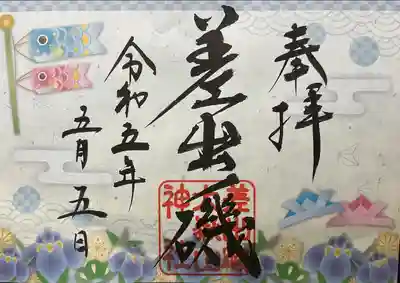 奉拝
差出磯
令和五年
五月五日